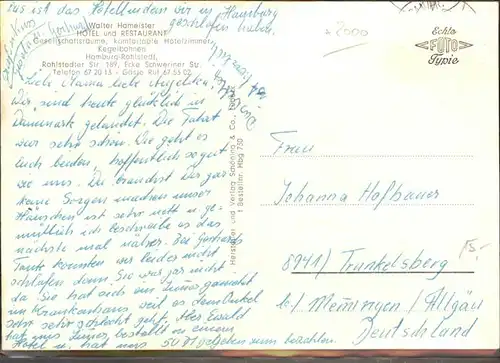 Das ist das Hotel indem wir in Hamburg
geschlafen haben.
Walter Hameister
HOTEL und RESTAURANT
Gesellschaftsräume, komfortable Hotelzimmer,
Kegelbahnen
Hamburg-Rahlstedt,
Rahlstedter Str. 189, Ecke Schweriner Str.
Telefon 67 20 15 - Gäste Ruf 67 55 02
Echte
FOTO
Typie
Liebe Mama liebe Angelika!
Wir sind heute glücklich in
Dänemark gelandet. Die Fahrt
war sehr schön. Wie geht es
euch beiden, hoffentlich so gut
wie uns. Du brauchst Dir gar
keine Sorgen machen unser
Häuschen ist sehr nett u. ge-
mütlich ich beschreibe es das
nächste mal näher. Bei Gerhards
Tante konnten wir leider nicht
schlafen denn Sie war gar nicht
da Sie hat sich ein Zimmer
im Krankenhaus weil es dem Onkel
sehr sehr schlecht geht. Herr Ewald
hat uns Zimmer bestellt in einem
Hotel u. hat uns 50 DM gegeben zum bezahlen.
Hersteller und Verlag Schöning & Co., Lübeck
Bestellnr. Hbg 750
Frau
Johanna Hofbauer
8941) Trunkelsberg
b/ Memmingen / Allgäu
Deutschland